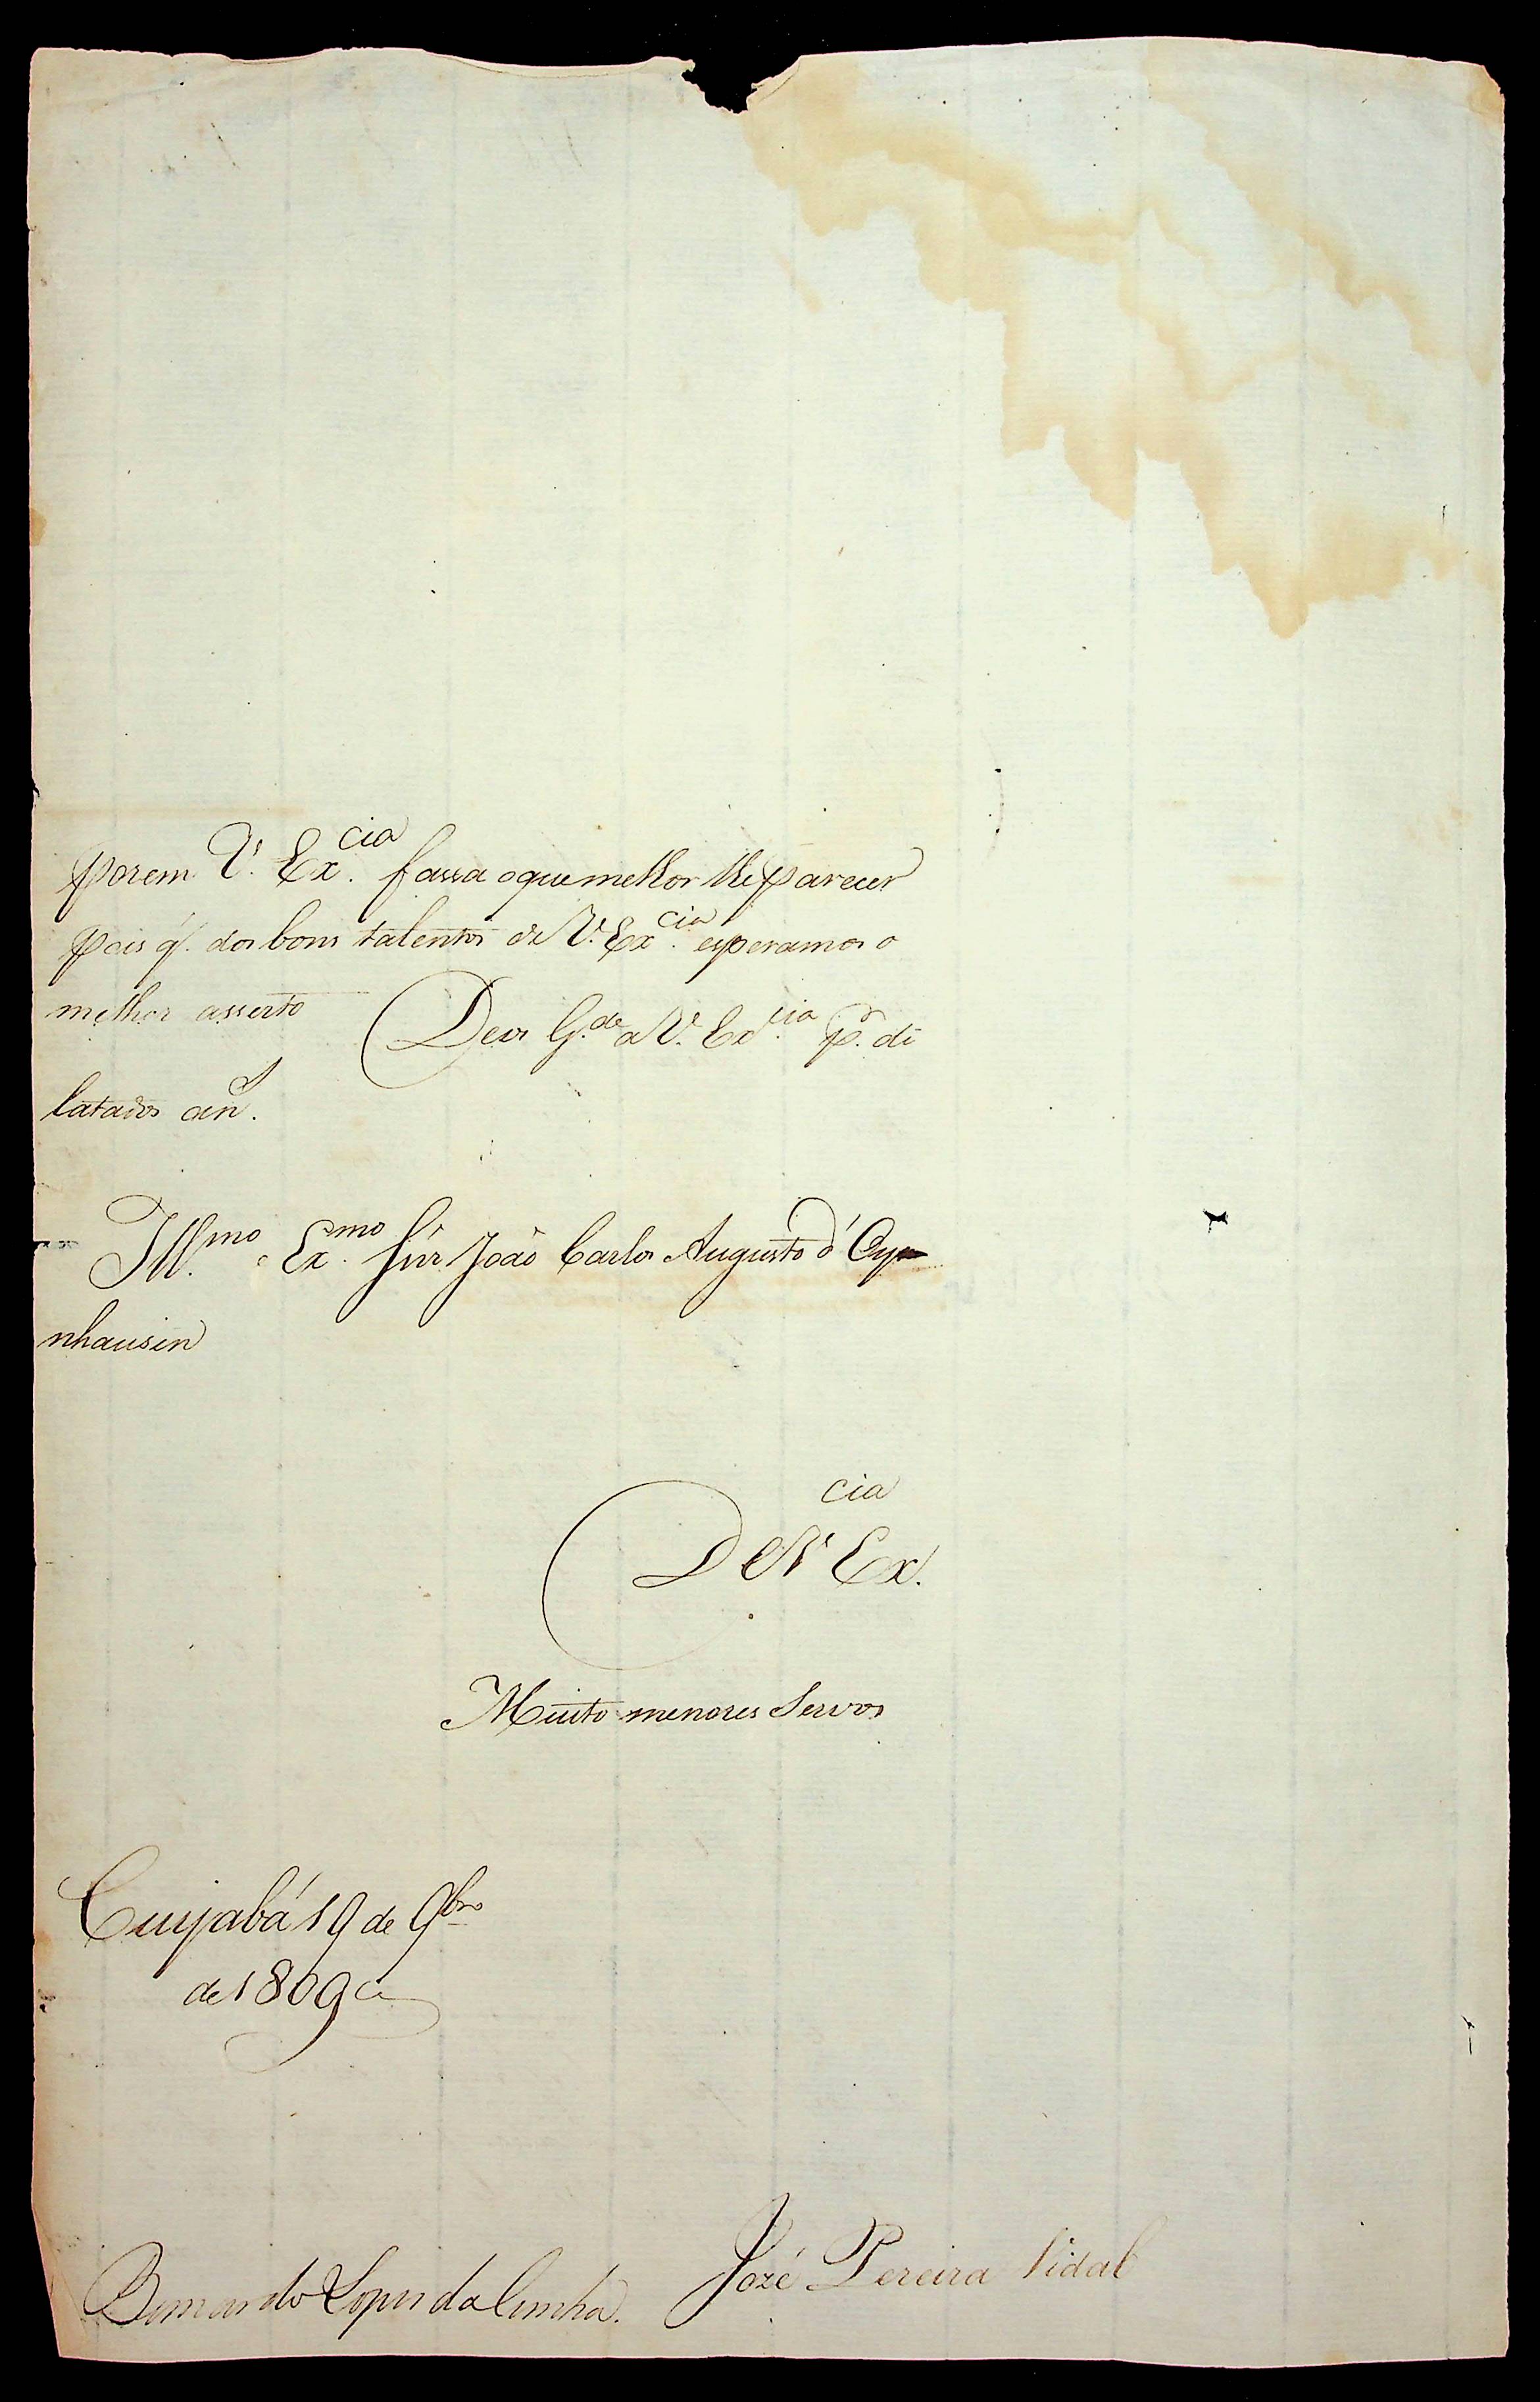 porem V. Ex.cia fassa o que melhor lhe parecer
pois q. dos bons talentos de V. Ex.cia esperamos o
melhor asserto Deos G.de a V. Ex.cia p.r di
latados an.s
Ill.mo e Ex.mo Snr João Carlos Augusto d'Oye
nhausen
De V Ex.cia
Muito menores Servos
Cuyabá 19 de 9bro
de 1809 a
Bernardo Lopes da Cunha.
Jozé Pereira Vidal